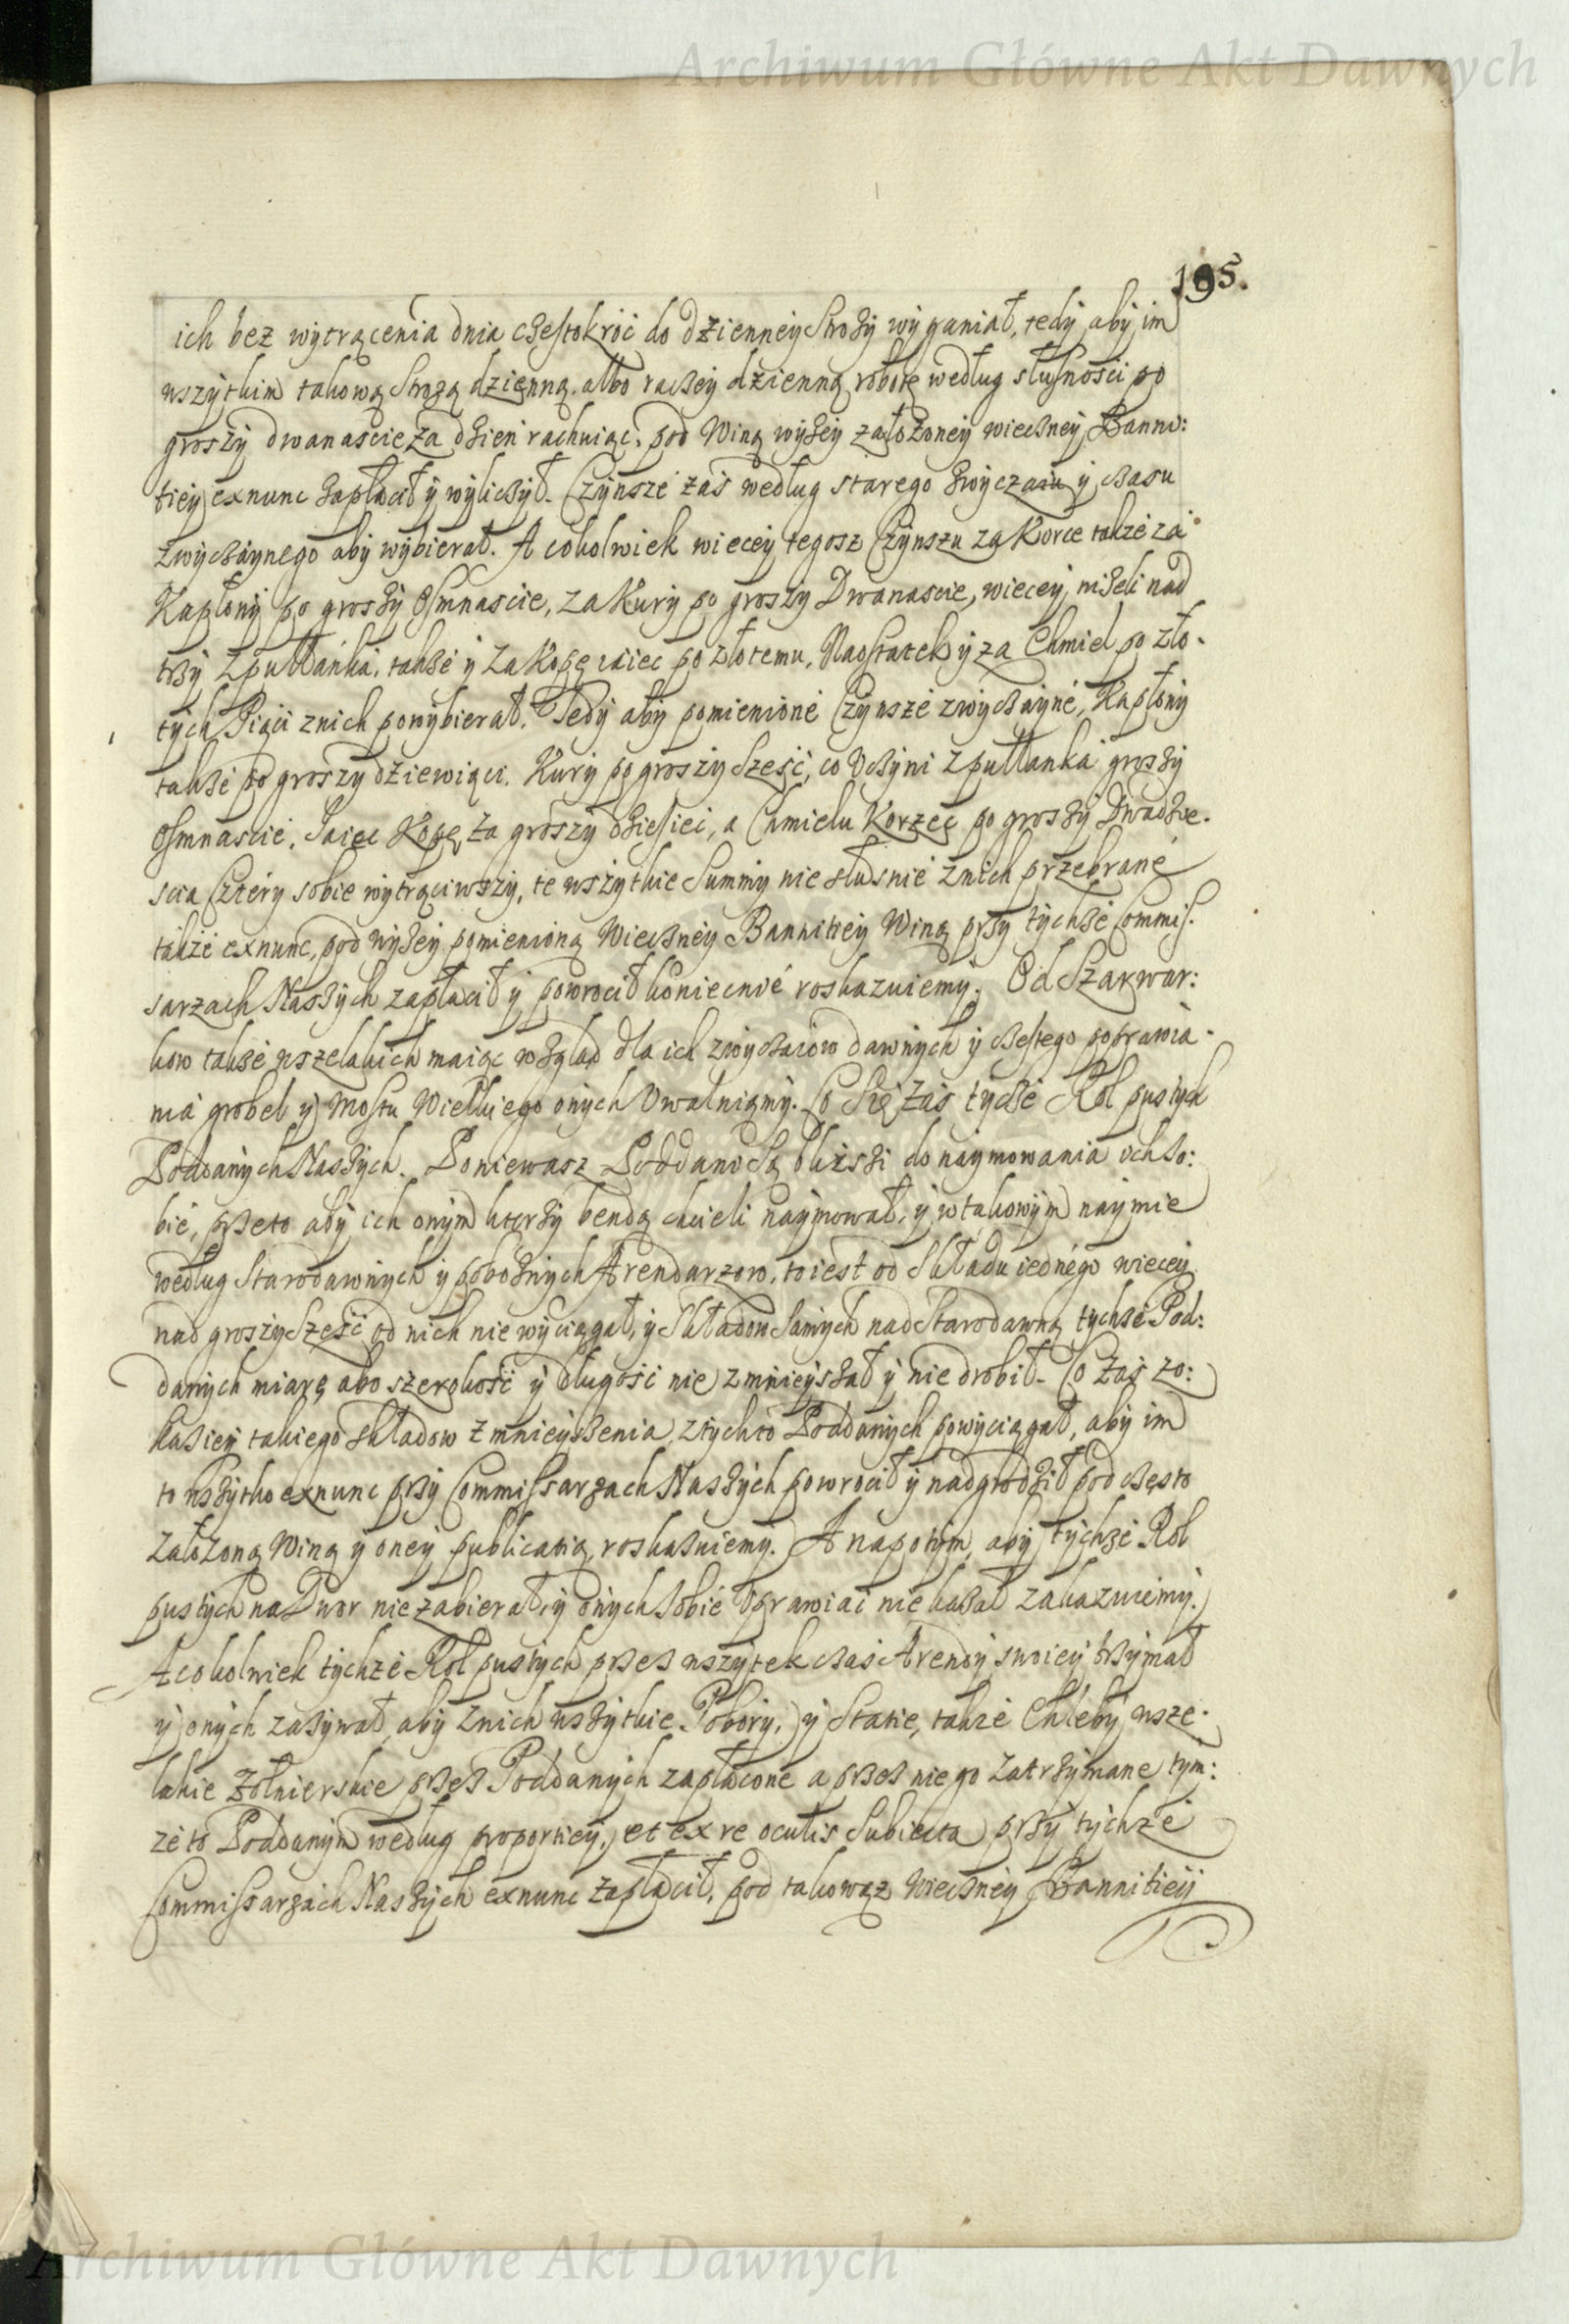 Archiwum Główne Akt Dawnych
195.
ich bez wytrącenia dnia częstokroć do dzienney Strozy wyganiał, tedy aby im
wszytkim takową Strożą dzienną, albo raczey dzienną robotę według słusności po
groszy dwanascie za dzien rachuiąc, pod Winą wyżey założoney wieczney Banni:
tiey exnunc zapłacił y wyliczył. Czynsze zaś według starego zwyczaiu y czasu
zwyczaynego aby wybierał. A cokolwiek wiecey tegosz Czynszu za Korce także za
Kapłony po groszy Osmnascie, za Kury po groszy Dwanascie, wiecey niżeli nad
trzy z pułłanka, także y za Kopę iaiec po złotemu, Naostatek y za Chmiel po zło-
tych Pięci znich powybierał. Tedy aby pomienione Czynsze zwyczayne, Kapłony
także po groszy dziewiąci. Kury po groszy Sześć, co Uczyni z pułłanka groszy
Osmnascie, Iaiec Kopę za groszy dziesięci, a Chmielu Korzec po groszy Dwadzie-
scia Cztery sobie wytrąciwszy, te wszytkie Summy niesłusnie znich przebrane
także exnunc, pod wyżey pomienioną Wieczney Bannitiey Winą przy tychże Commis-
sarzach Naszych zapłacił y powrocił koniecznie roskazuiemy. Od Szarwar:
kow także wszelakich maiąc wzgląd dla ich zwyczaiow dawnych y częstego poprawia-
nia grobel y Mostu Wielkiego onych Uwalniamy. Co Się zaś tycze Rol pustych
Poddanych Naszych. Poniewasz Poddani Są bliższi do naymowania ich So:
bie, przeto aby ich onym ktorzy bendą chcieli naymował, y w takowym naymie
według Starodawnych y pobożnych Arendarzow, to iest od Składu iednego wiecey
nad groszy Sześć od nich nie wyciągał, y Składow Samych nad Starodawną tychże Pod:
danych miarę abo szerokość y długość nie zmnieyszał y nie drobił. Co zaś zo:
kaziey takiego Składow zmnieyszenia, z tychto Poddanych powyciągał, aby im
to wszytko exnunc przy Commissarzach Naszych powrocił y nadgrodził pod często
założoną Winą y oney publicatią, roskazuiemy. A napotym, aby tychże Rol
pustych na Dwor nie zabierał, y onych Sobie Uprawiać nie kazał zakazuiemy.
A cokolwiek tychże Rol pustych przes wszytek czas Arendy swoiey trzymał
y onych zażywał, aby znich wszytkie Pobory, y Statie, także Chleby wsze-
lakie Zołnierskie przes Poddanych zapłacone a przes niego zatrzymane tym:
że to Poddanym według proportiey, et ex re oculis Subiecta przy tychże
Commissarzach Naszych exnunc zapłacił, pod takowąż Wieczney Bannitiey
Archiwum Główne Akt Dawnych